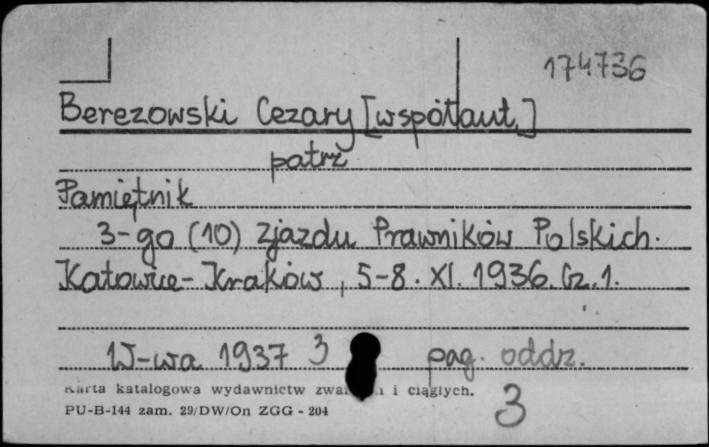 174736
Berezowski Cezary [współaut.]
patrz
Pamiętnik
3-go (10) Zjazdu Prawników Polskich.
Katowice-Kraków, 5-8. XI. 1936. Cz. 1.
W-wa 1937 3 pag. oddz.
Karta katalogowa wydawnictw i ciągłych.
PU-B-144 zam. 29/DW/On ZGG - 204
3